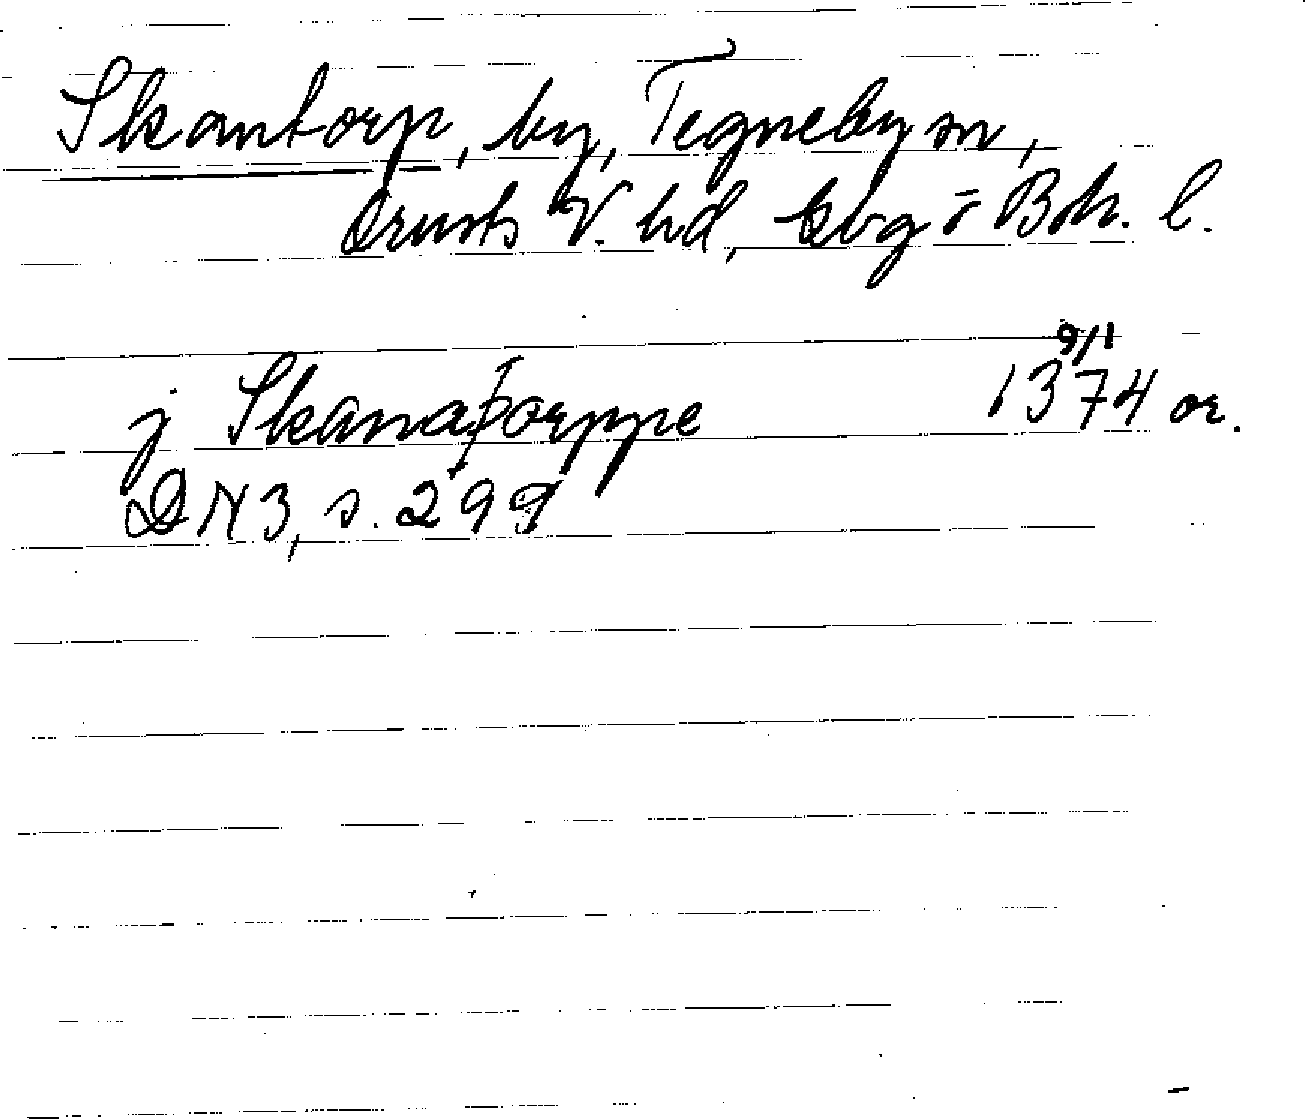 Skantorp, by, Tegneby sn,
Orusts V. hd, Gbg o Boh. l.
j Skanaþorppe 1374 9/1 or.
DN 3, s. 299